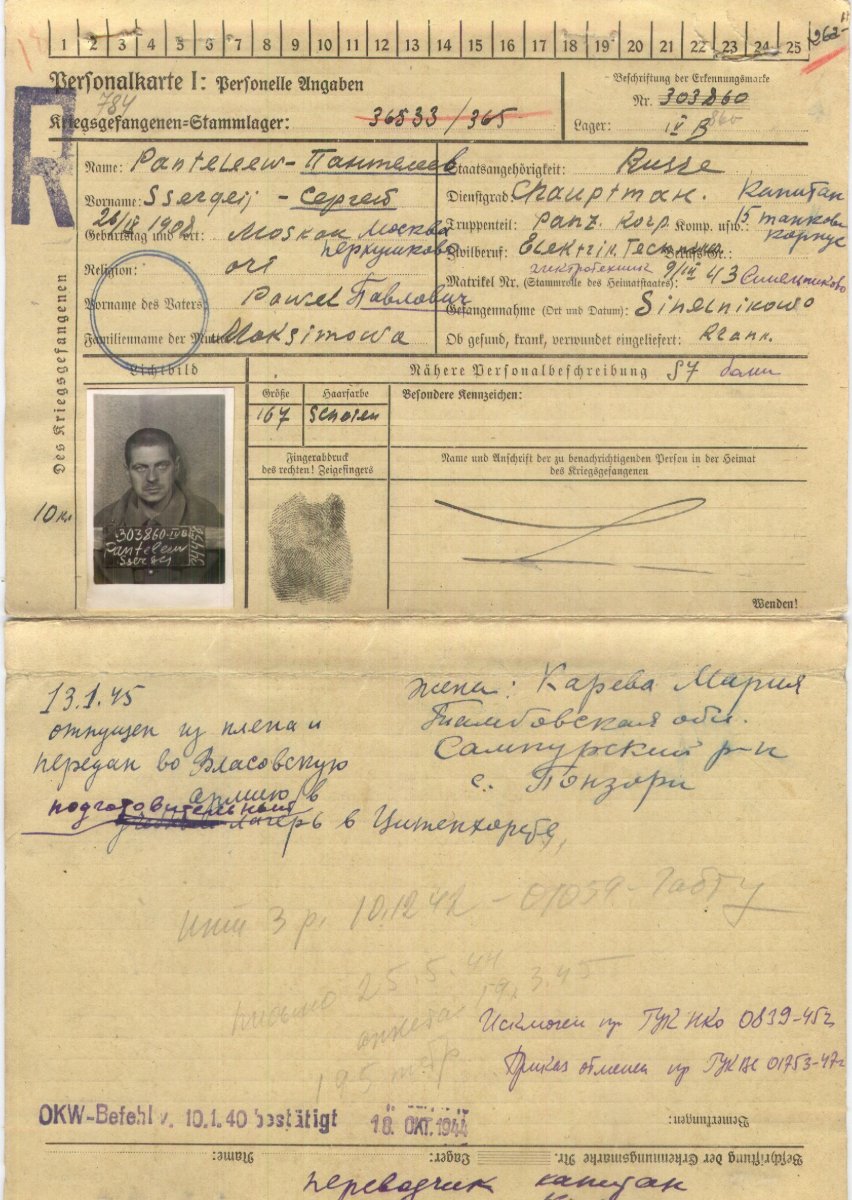 1 2 3 4 5 6 7 8 9 10 11 12 13 14 15 16 17 18 19 20 21 22 23 24 25
262
Personalkarte I: Personelle Angaben
784
Kriegsgefangenen=Stammlager: 36533/365
Beschriftung der Erkennungsmarke
Nr. 303860
860
Lager: IV B
R
Des Kriegsgefangenen
Name: Panteleew - Пантелеев
Vorname: Ssergeij - Сергей
Geburtstag und Ort: Moskau Москва
Перхушково
Religion: ort
Vorname des Vaters: Pawel Павлович
Familienname der Maksimowa
Staatsangehörigkeit: Russe
Dienstgrad: Hauptman. Капитан
Truppenteil: Panz. Korp. Komp. usw.: 15 танков
корпус
Zivilberuf: Elektrik. Berufs-Gr.:
электротехник
Matrikel Nr. (Stammrolle des Heimatstaates): 43 Синельниково
Gefangennahme (Ort und Datum): Sinelnikowo
Ob gesund, krank, verwundet eingeliefert: Krank.
Lichtbild
Nähere Personalbeschreibung
Größe
Haarfarbe
Besondere Kennzeichen:
167
Fingerabdruck
des rechten! Zeigefingers
Name und Anschrift der zu benachrichtigenden Person in der Heimat
des Kriegsgefangenen
303860-IVB
Panteleew
Ssergej
Wenden!
13.1.45
отпущен из плена и
передан во Власовскую
армию в
подготовительный
лагерь в
жена: Карева Мария
Тамбовская обл.
Сампурский р-н
с.
10.12.42 - 01059 -
письмо 25.5.44
анкета 19.3.45
195
Исключен пр ГУК НКО 0839-45г
Приказ отменен пр ГУК ВС 01753-47г
OKW-Befehl v. 10.1.40 bestätigt 18. OKT. 1944
Bemerkungen:
Beschriftung der Erkennungsmarke Nr. Lager: Name:
переводчик капитан